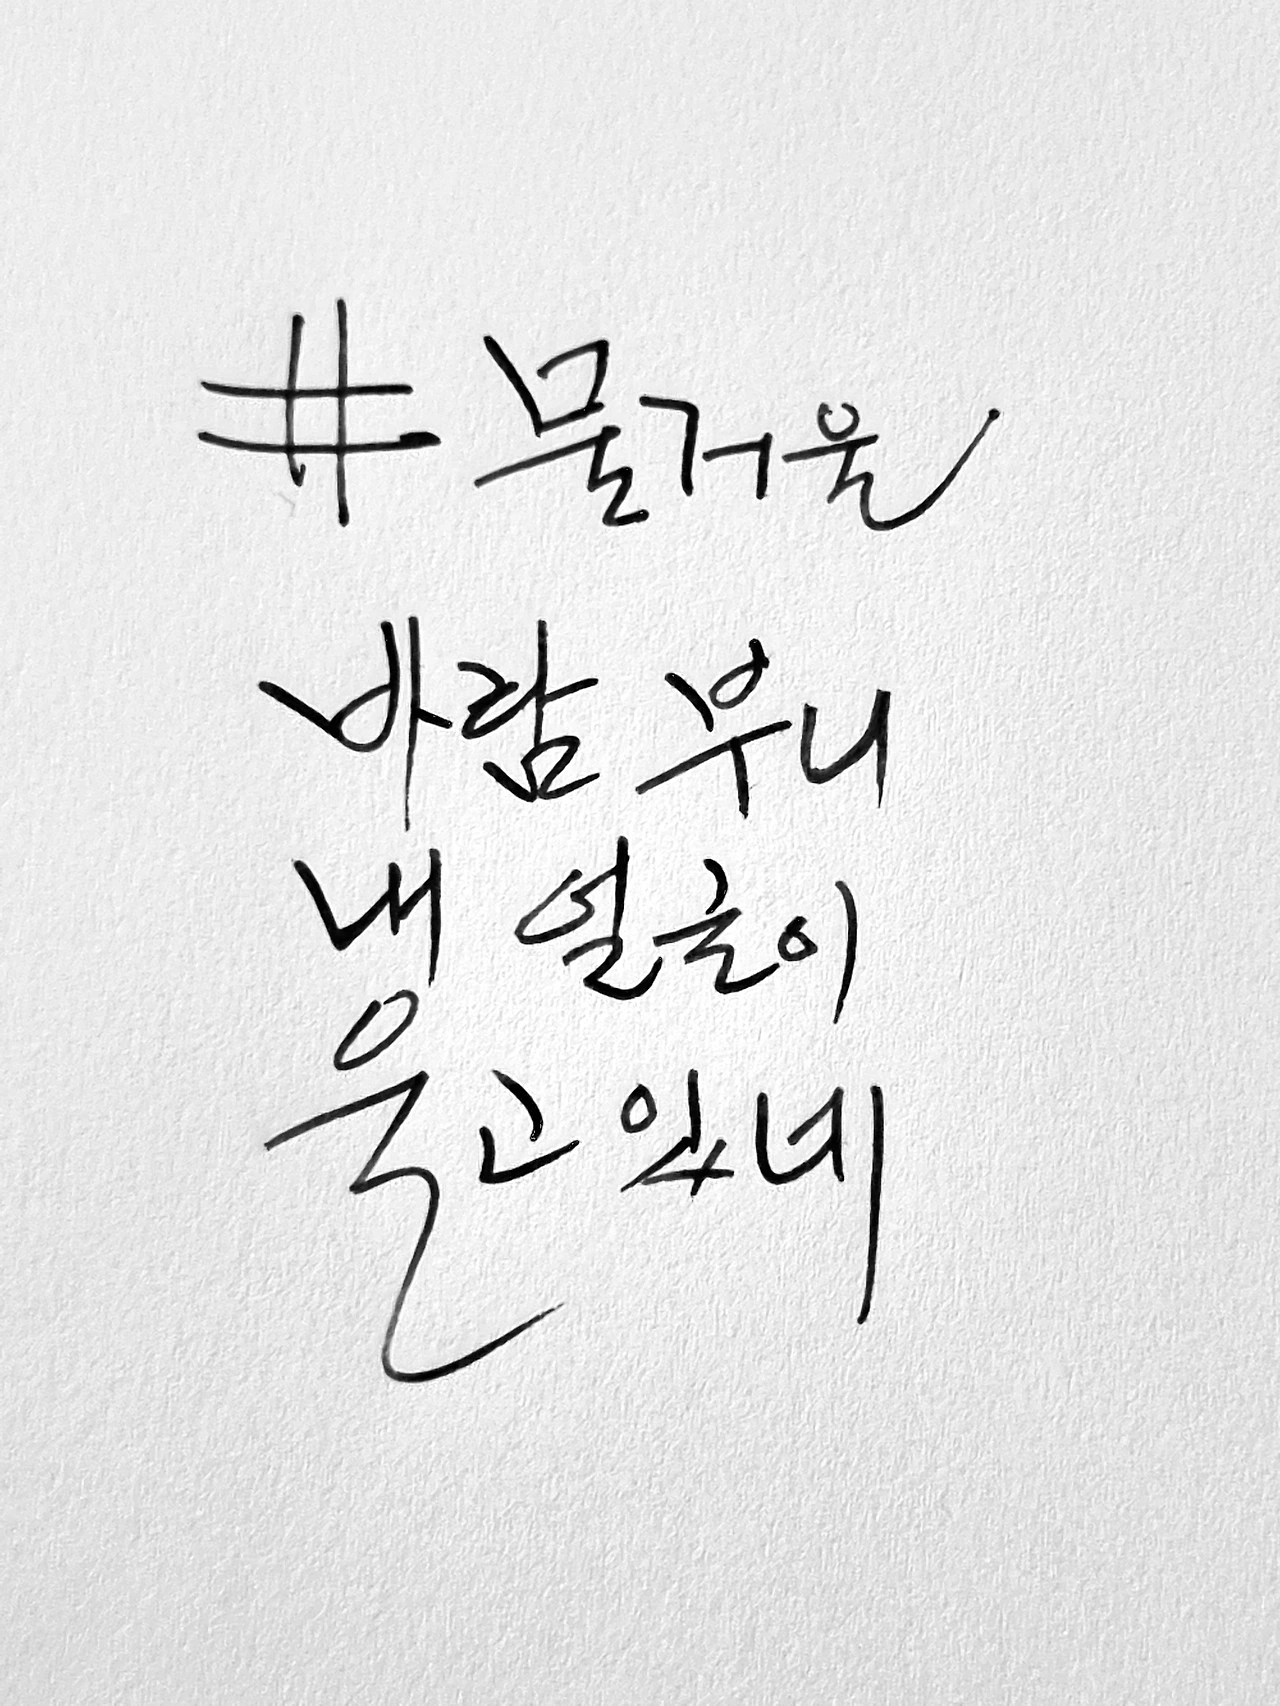 # 물거울
바람 부니
내 얼굴이
울고 있네